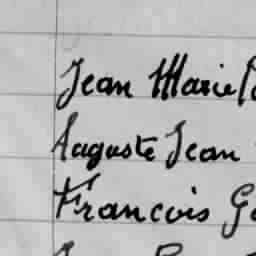 Jean Marie
Auguste Jean
Francois